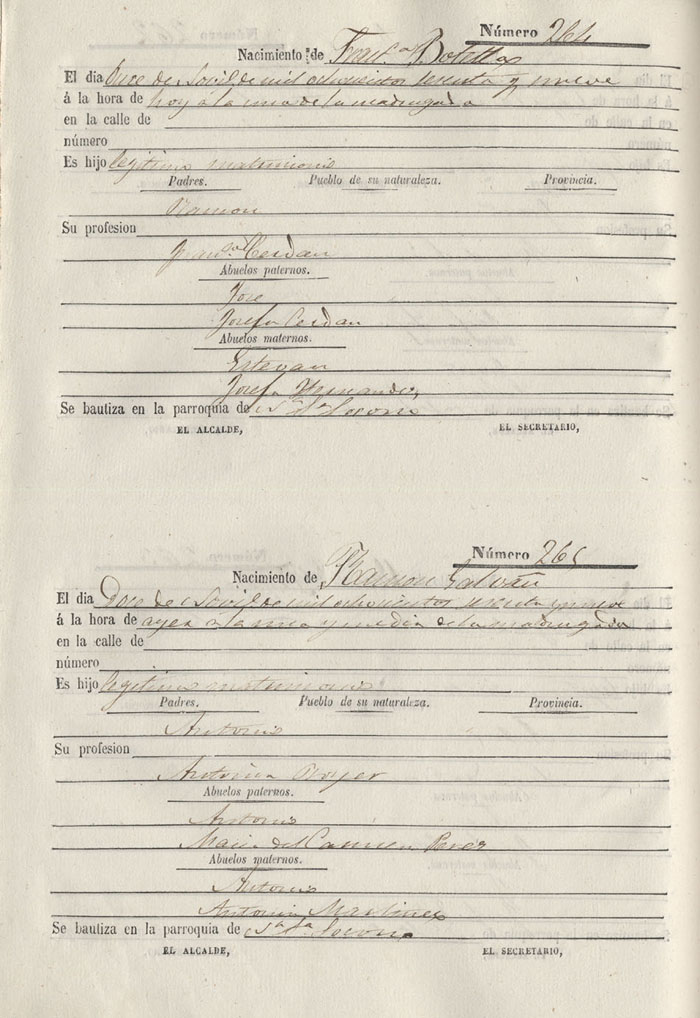 Número 264
Nacimiento de Fran.ca Botella
El dia Once de Abril de mil ochocientos sesenta y nueve
á la hora de hoy á la una de la madrugada
en la calle de
número
Es hijo legitimo matrimonio
Padres. Pueblo de su naturaleza. Provincia.
Ramon
Su profesion
Fran.ca Cerdan
Abuelos paternos.
Jose
Josefa Cerdan
Abuelos maternos.
Estevan
Josefa Hernandez
Se bautiza en la parroquia de Socorro
EL ALCALDE, EL SECRETARIO,
Número 265
Nacimiento de Ramon Galvañ
El dia Doce de Abril de mil ochocientos sesenta y nueve
á la hora de ayer a la una y media de la madrugada
en la calle de
número
Es hijo legitimo matrimonio
Padres. Pueblo de su naturaleza. Provincia.
Antonio
Su profesion
Antonia
Abuelos paternos.
Antonio
Maria del Carmen Perez
Abuelos maternos.
Antonio
Antonia Martinez
Se bautiza en la parroquia de Socorro
EL ALCALDE, EL SECRETARIO,